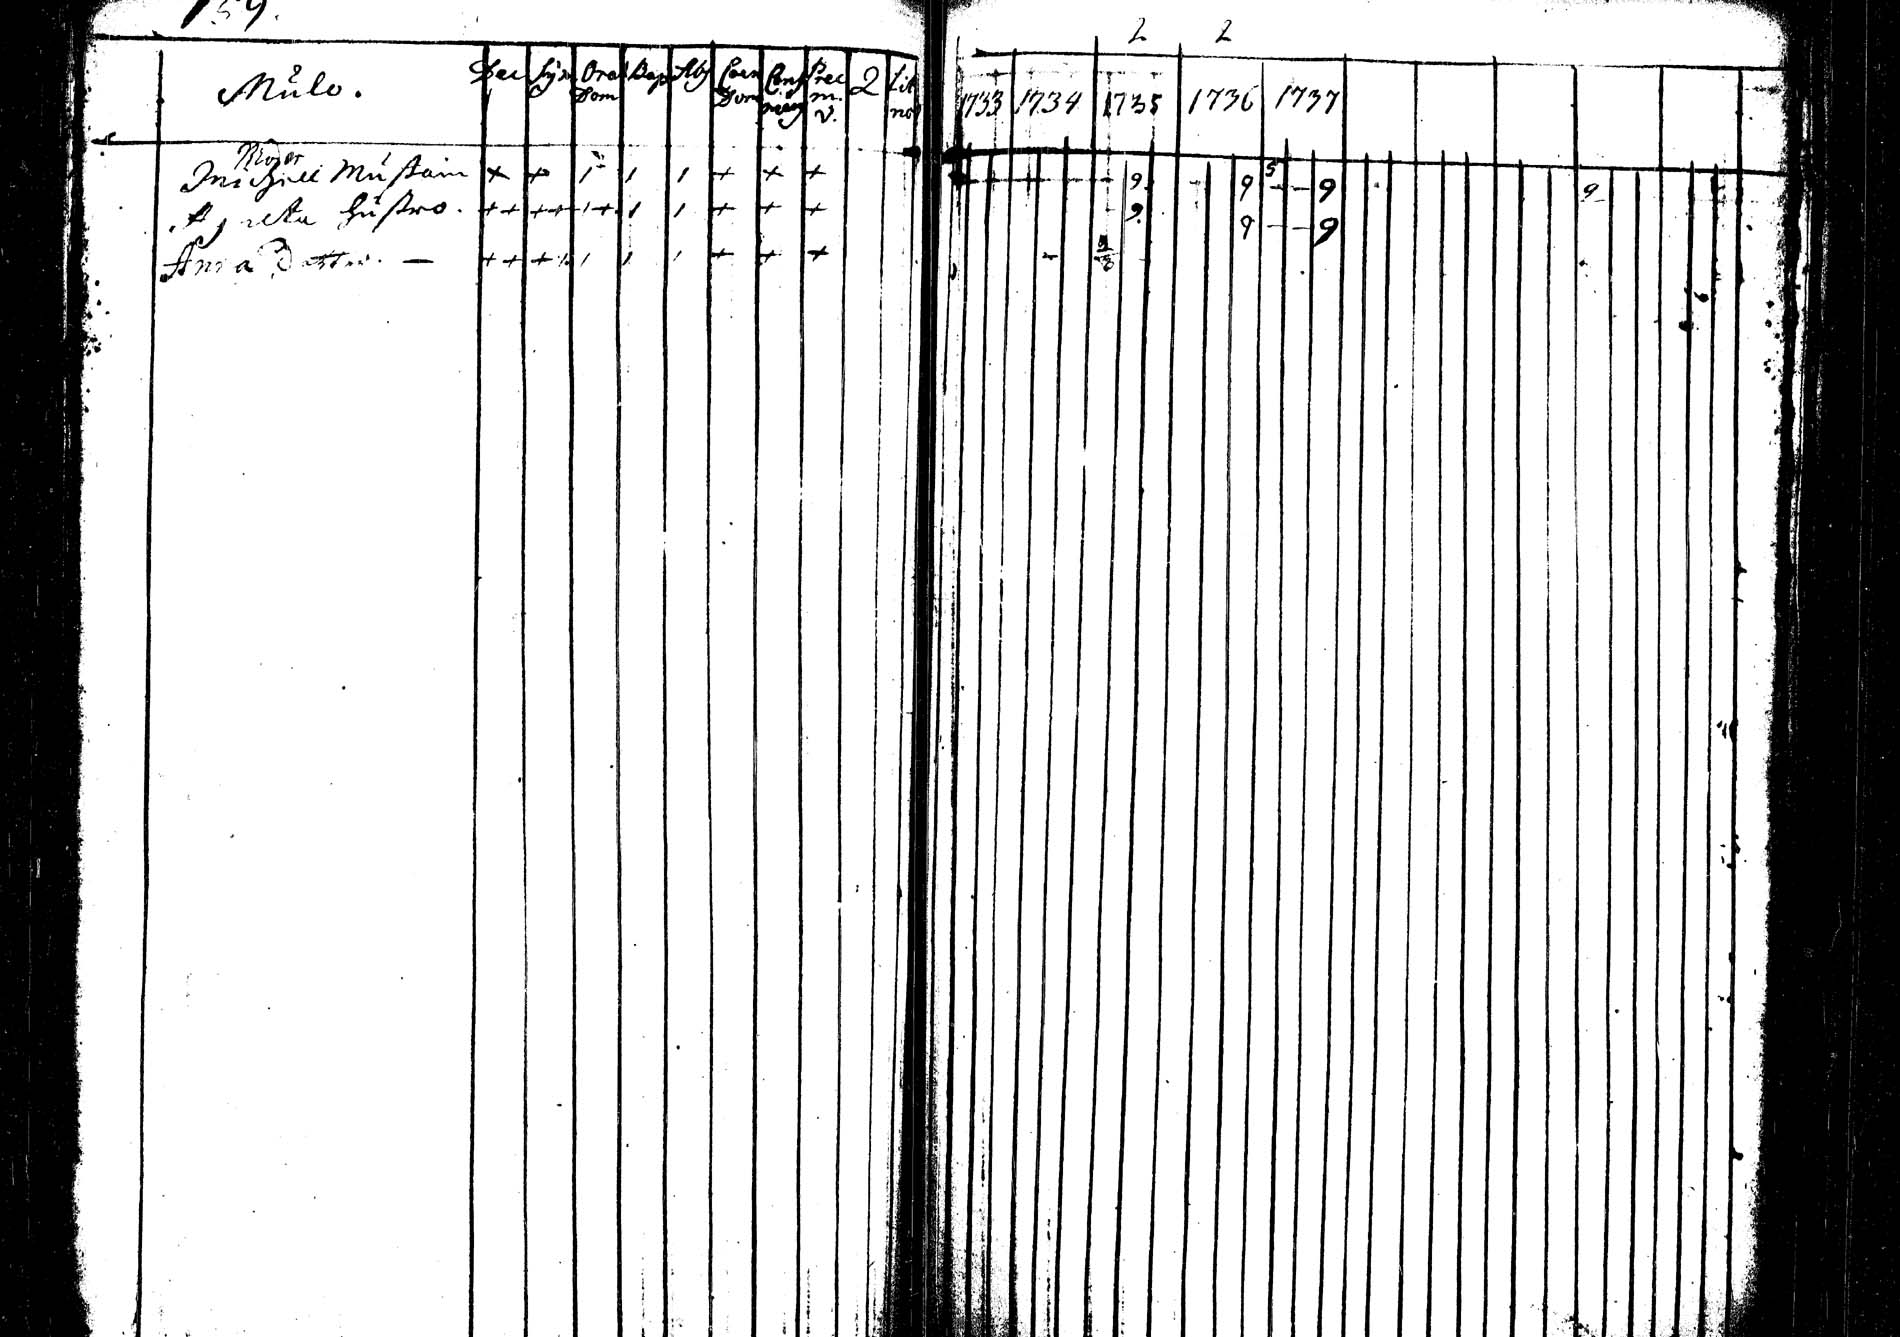 159.
Mulo. Dec Sym Ora Dom Bap Abs Coen Dom Conf Prec m. v. 2 Lit no
2 2
1733 1734 1735 1736 1737
Michell Mustain + + 1 1 1 + + + 9 9 5 9 9
Agneta hustro. + + + + 1 + 1 1 + + + 9 9 9
Anna Dotter. — + + + 1 1 1 1 + + +